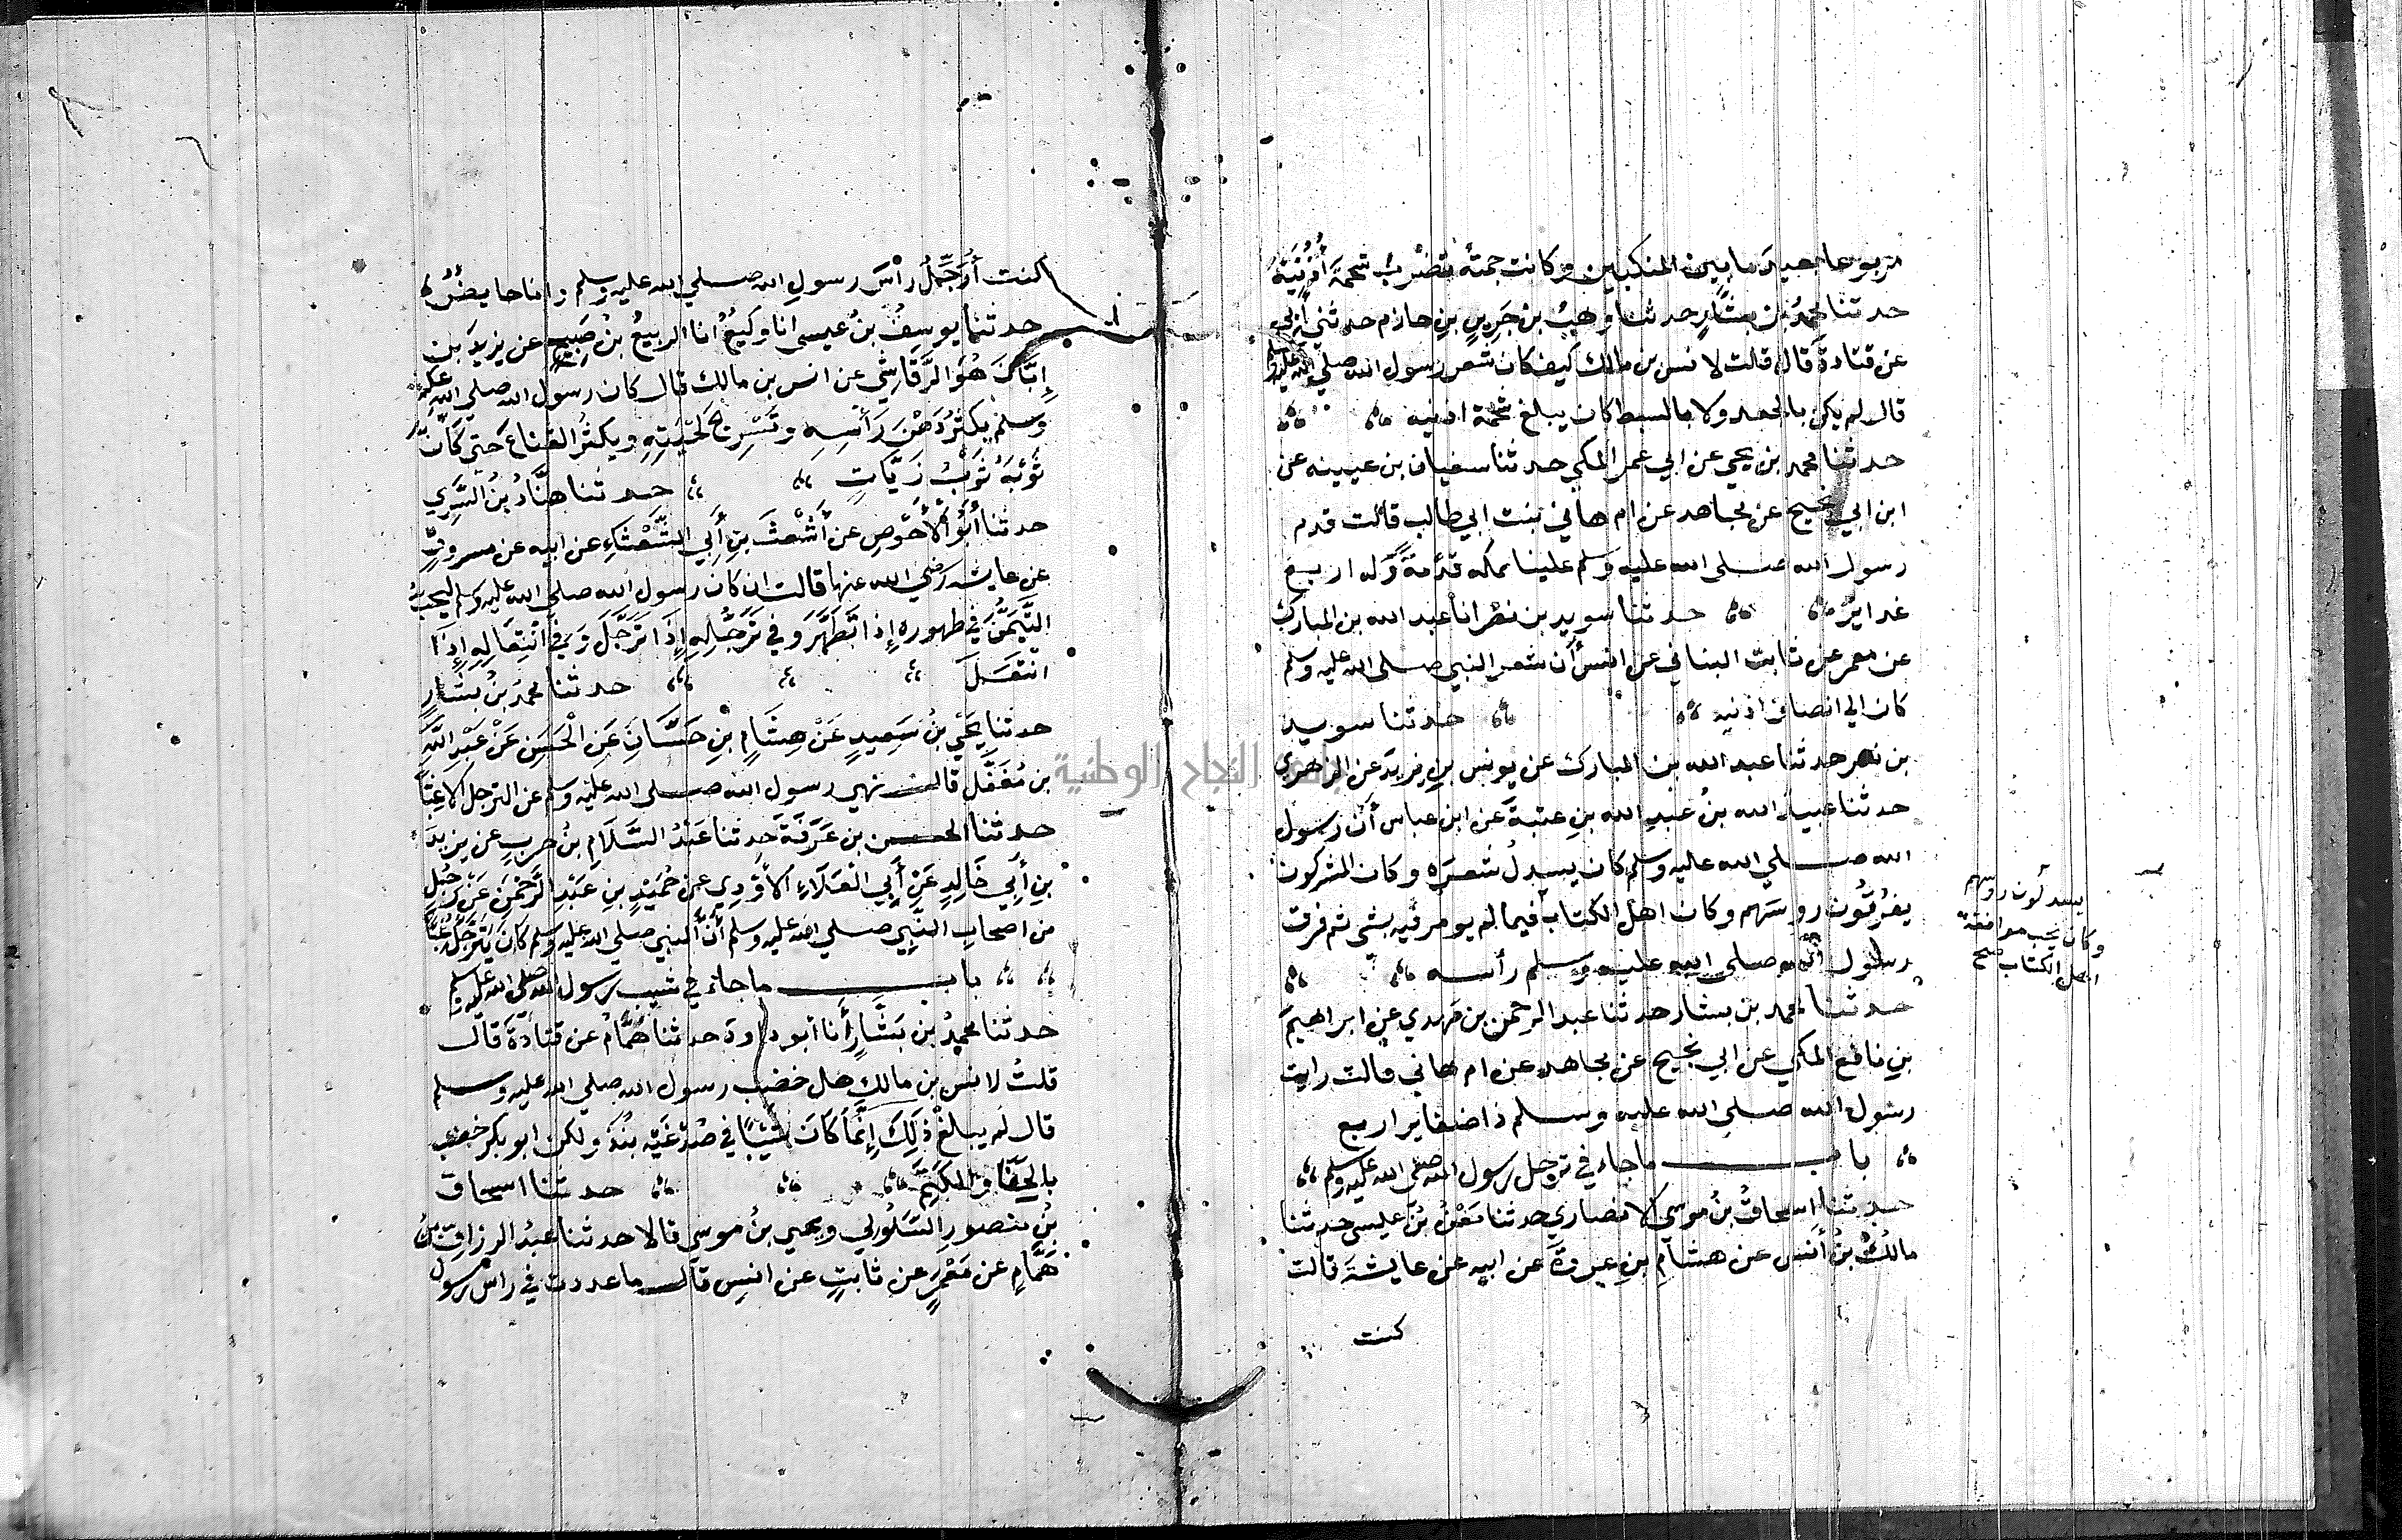 مربوعا بعيد ما بين المنكبين وكانت جمته تضرب شحمة أذنيه
حدثنا محمد بن بشار حدثنا وهب بن جرير بن حازم حدثني أبي
عن قتادة قال قلت لانس بن مالك كيف كان شعر رسول الله صلى الله عليه وسلم
قال لم يكن بالجعد ولا بالسبط كان يبلغ شحمة اذنيه
حدثنا محمد بن يحي عن ابي عمر المكي حدثنا سفيان بن عيينه عن
ابن ابي نجيح عن مجاهد عن ام هاني بنت ابي طالب قالت قدم
رسول الله صلى الله عليه وسلم علينا مكه قدمة وله اربع
غداير حدثنا سويد بن نصر انا عبد الله بن المبارك
عن معمر عن ثابت البناني عن انس أن شعر النبي صلى الله عليه وسلم
كان الي انصاف اذنيه حدثنا سويد
بن نصر حدثنا عبد الله بن المبارك عن يونس بن يزيد عن الزهري
حدثنا عبيد الله بن عبد الله بن عتبة عن ابن عباس أن رسول
الله صلي الله عليه وسلم كان يسدل شعره وكان المشركون
يفرقون روسهم وكان اهل الكتاب فيما لم يومر فيه بشي ثم فرق
رسول الله صلى الله عليه وسلم رأسه
يسدلون روسهم
وكان يحب موافقة
اهل الكتاب صح
حدثنا محمد بن بشار حدثنا عبد الرحمن بن مهدي عن ابراهيم
بن نافع المكي عن ابي نجيح عن مجاهد عن ام هاني قالت رايت
رسول الله صلى الله عليه وسلم ذا ضفاير اربع
باب ماجاء في ترجل رسول الله صلى الله عليه وسلم
حدثنا اسحاق بن موسى الانصاري حدثنا معن بن عيسى حدثنا
مالك بن أنس عن هشام بن عروة عن ابيه عن عايشة قالت
كنت
كنت أرجل رأس رسول الله صلي الله عليه وسلم وانا حايض
حدثنا يوسف بن عيسى انا وكيع انا الربيع بن صبيح عن يزيد بن
إبان هو الرقاشي عن انس بن مالك قال كان رسول الله صلى الله عليه
وسلم يكثر دهن رأسه وتسريح لحيته ويكثر القناع حتى كأن
ثوبه ثوب زيات حدثنا هناد بن السري
حدثنا أبو الأحوص عن أشعث بن أبي الشعثاء عن ابيه عن مسروق
عن عايشه رضي الله عنها قالت ان كان رسول الله صلى الله عليه وسلم ليحب
التيمن في طهوره إذا تطهر وفي ترجله إذا ترجل وفي انتعاله إذا
انتعل حدثنا محمد بن بشار
حدثنا يحي بن سعيد عن هشام بن حسان عن الحسن عن عبد الله
بن مغفل قال نهي رسول الله صلى الله عليه وسلم عن الترجل الا غبا
حدثنا الحسن بن عرفة حدثنا عبد السلام بن حرب عن يزيد
بن أبي خالد عن أبي العلاء الأودي عن حميد بن عبد الرحمن عن رجل
من اصحاب النبي صلي الله عليه وسلم أن النبي صلي الله عليه وسلم كان يترجل غبا
باب ماجاء في شيب رسول الله صلى الله عليه وسلم
حدثنا محمد بن بشار أنا أبو داود حدثنا همام عن قتادة قال
قلت لانس بن مالك هل خضب رسول الله صلى الله عليه وسلم
قال لم يبلغ ذلك إنما كان شيبا في صدغيه ولكن ابو بكر خضب
بالحنا والكتم حدثنا اسحاق
بن منصور السلولي ويحي بن موسى قالا حدثنا عبد الرزاق بن
همام عن معمر عن ثابت عن انس قال ما عددت في راس رسول
جامعة النجاح الوطنية